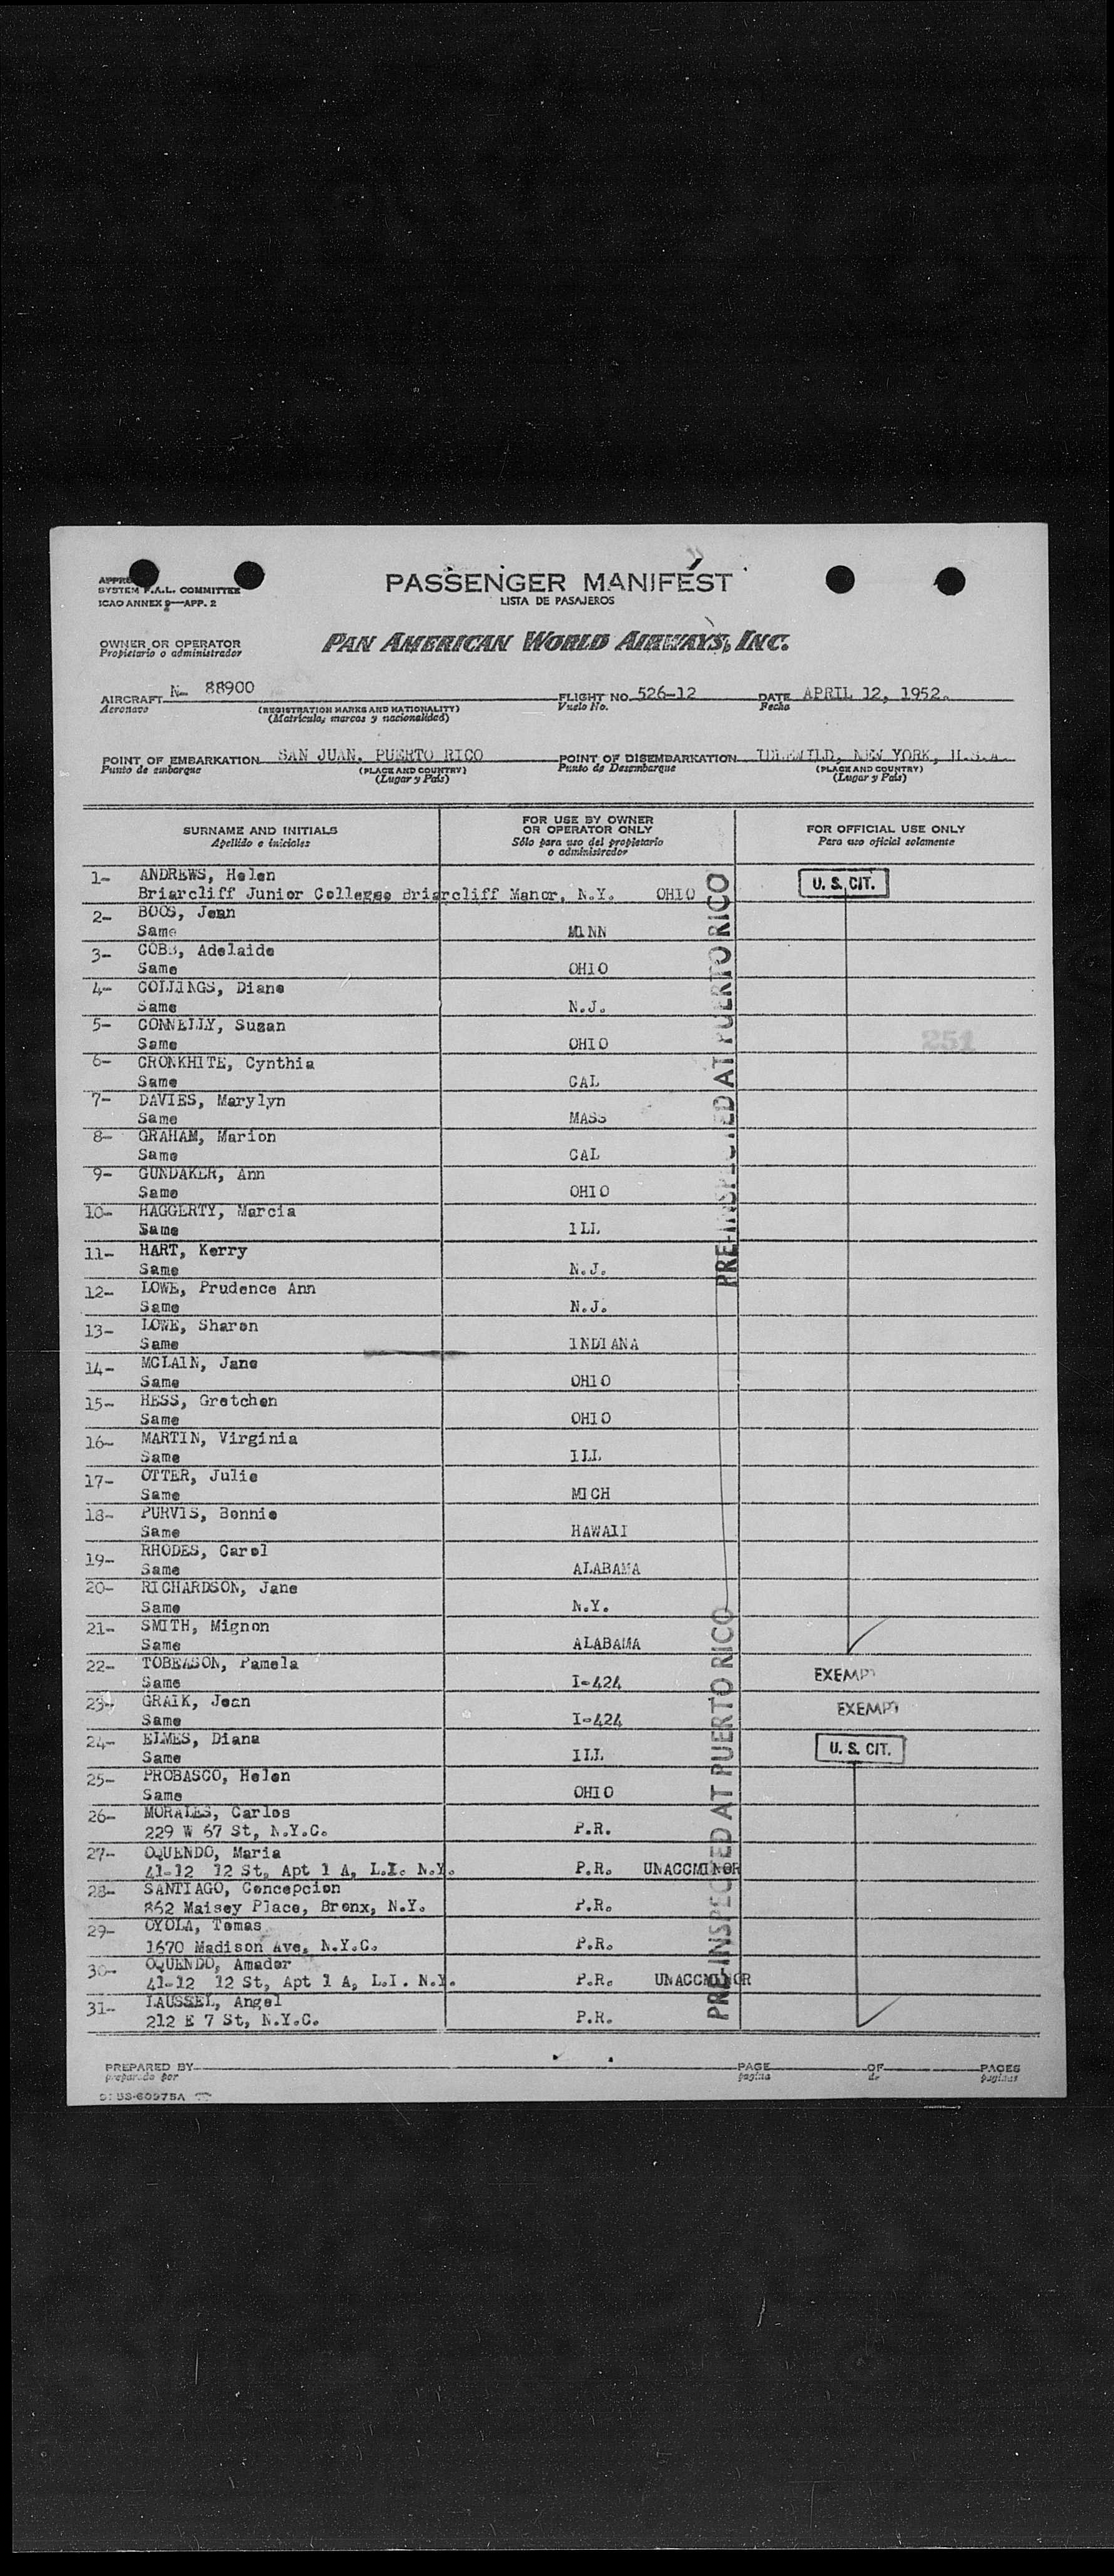 PASSENGER MANIFEST
LISTA DE PASAJEROS
SYSTEM F.A.L. COMMITTEE
ICAO ANNEX 9—APP. 2
OWNER OR OPERATOR
Propietario o administrador
PAN AMERICAN WORLD AIRWAYS, INC.
AIRCRAFT N- 88900 FLIGHT NO. 526-12 DATE APRIL 12, 1952.
Aeronave (REGISTRATION MARKS AND NATIONALITY) Vuelo No. Fecha
(Matrícula, marcas y nacionalidad)
POINT OF EMBARKATION SAN JUAN, PUERTO RICO POINT OF DISEMBARKATION IDLEWILD, NEW YORK, U.S.A.
Punto de embarque (PLACE AND COUNTRY) Punto de Desembarque (PLACE AND COUNTRY)
(Lugar y País) (Lugar y País)
SURNAME AND INITIALS
Apellido e iniciales
FOR USE BY OWNER
OR OPERATOR ONLY
Sólo para uso del propietario
o administrador
FOR OFFICIAL USE ONLY
Para uso oficial solamente
1- ANDREWS, Helen U. S. CIT.
Briarcliff Junior College Briarcliff Manor, N.Y. OHIO
2- BOOS, Jean
Same MINN
3- COBB, Adelaide
Same OHIO
4- COLLINGS, Diane
Same N.J.
5- CONNELLY, Susan
Same OHIO 251
6- CRONKHITE, Cynthia
Same CAL
7- DAVIES, Marylyn
Same MASS
8- GRAHAM, Marion
Same CAL
9- GUNDAKER, Ann
Same OHIO
10- HAGGERTY, Marcia
Same ILL
11- HART, Kerry
Same N.J.
12- LOWE, Prudence Ann
Same N.J.
13- LOWE, Sharon
Same INDIANA
14- MCLAIN, Jane
Same OHIO
15- HESS, Gretchen
Same OHIO
16- MARTIN, Virginia
Same ILL
17- OTTER, Julie
Same MICH
18- PURVIS, Bonnie
Same HAWAII
19- RHODES, Carol
Same ALABAMA
20- RICHARDSON, Jane
Same N.Y.
21- SMITH, Mignon
Same ALABAMA
22- TOBEASON, Pamela
Same I-424 EXEMPT
23- GRAIK, Jean
Same I-424 EXEMPT
24- ELMES, Diana
Same ILL U. S. CIT.
25- PROBASCO, Helen
Same OHIO
26- MORALES, Carlos
229 W 67 St, N.Y.C. P.R.
27- OQUENDO, Maria
41-12 12 St, Apt 1 A, L.I. N.Y. P.R. UNACCMINOR
28- SANTIAGO, Concepcion
862 Maisey Place, Bronx, N.Y. P.R.
29- OYOLA, Tomas
1670 Madison Ave, N.Y.C. P.R.
30- OQUENDO, Amador
41-12 12 St, Apt 1 A, L.I. N.Y. P.R. UNACCMINOR
31- LAUSSEL, Angel
212 E 7 St, N.Y.C. P.R.
PRE-INSPECTED AT PUERTO RICO
PRE-INSPECTED AT PUERTO RICO
PREPARED BY PAGE OF PAGES
preparado por página de páginas